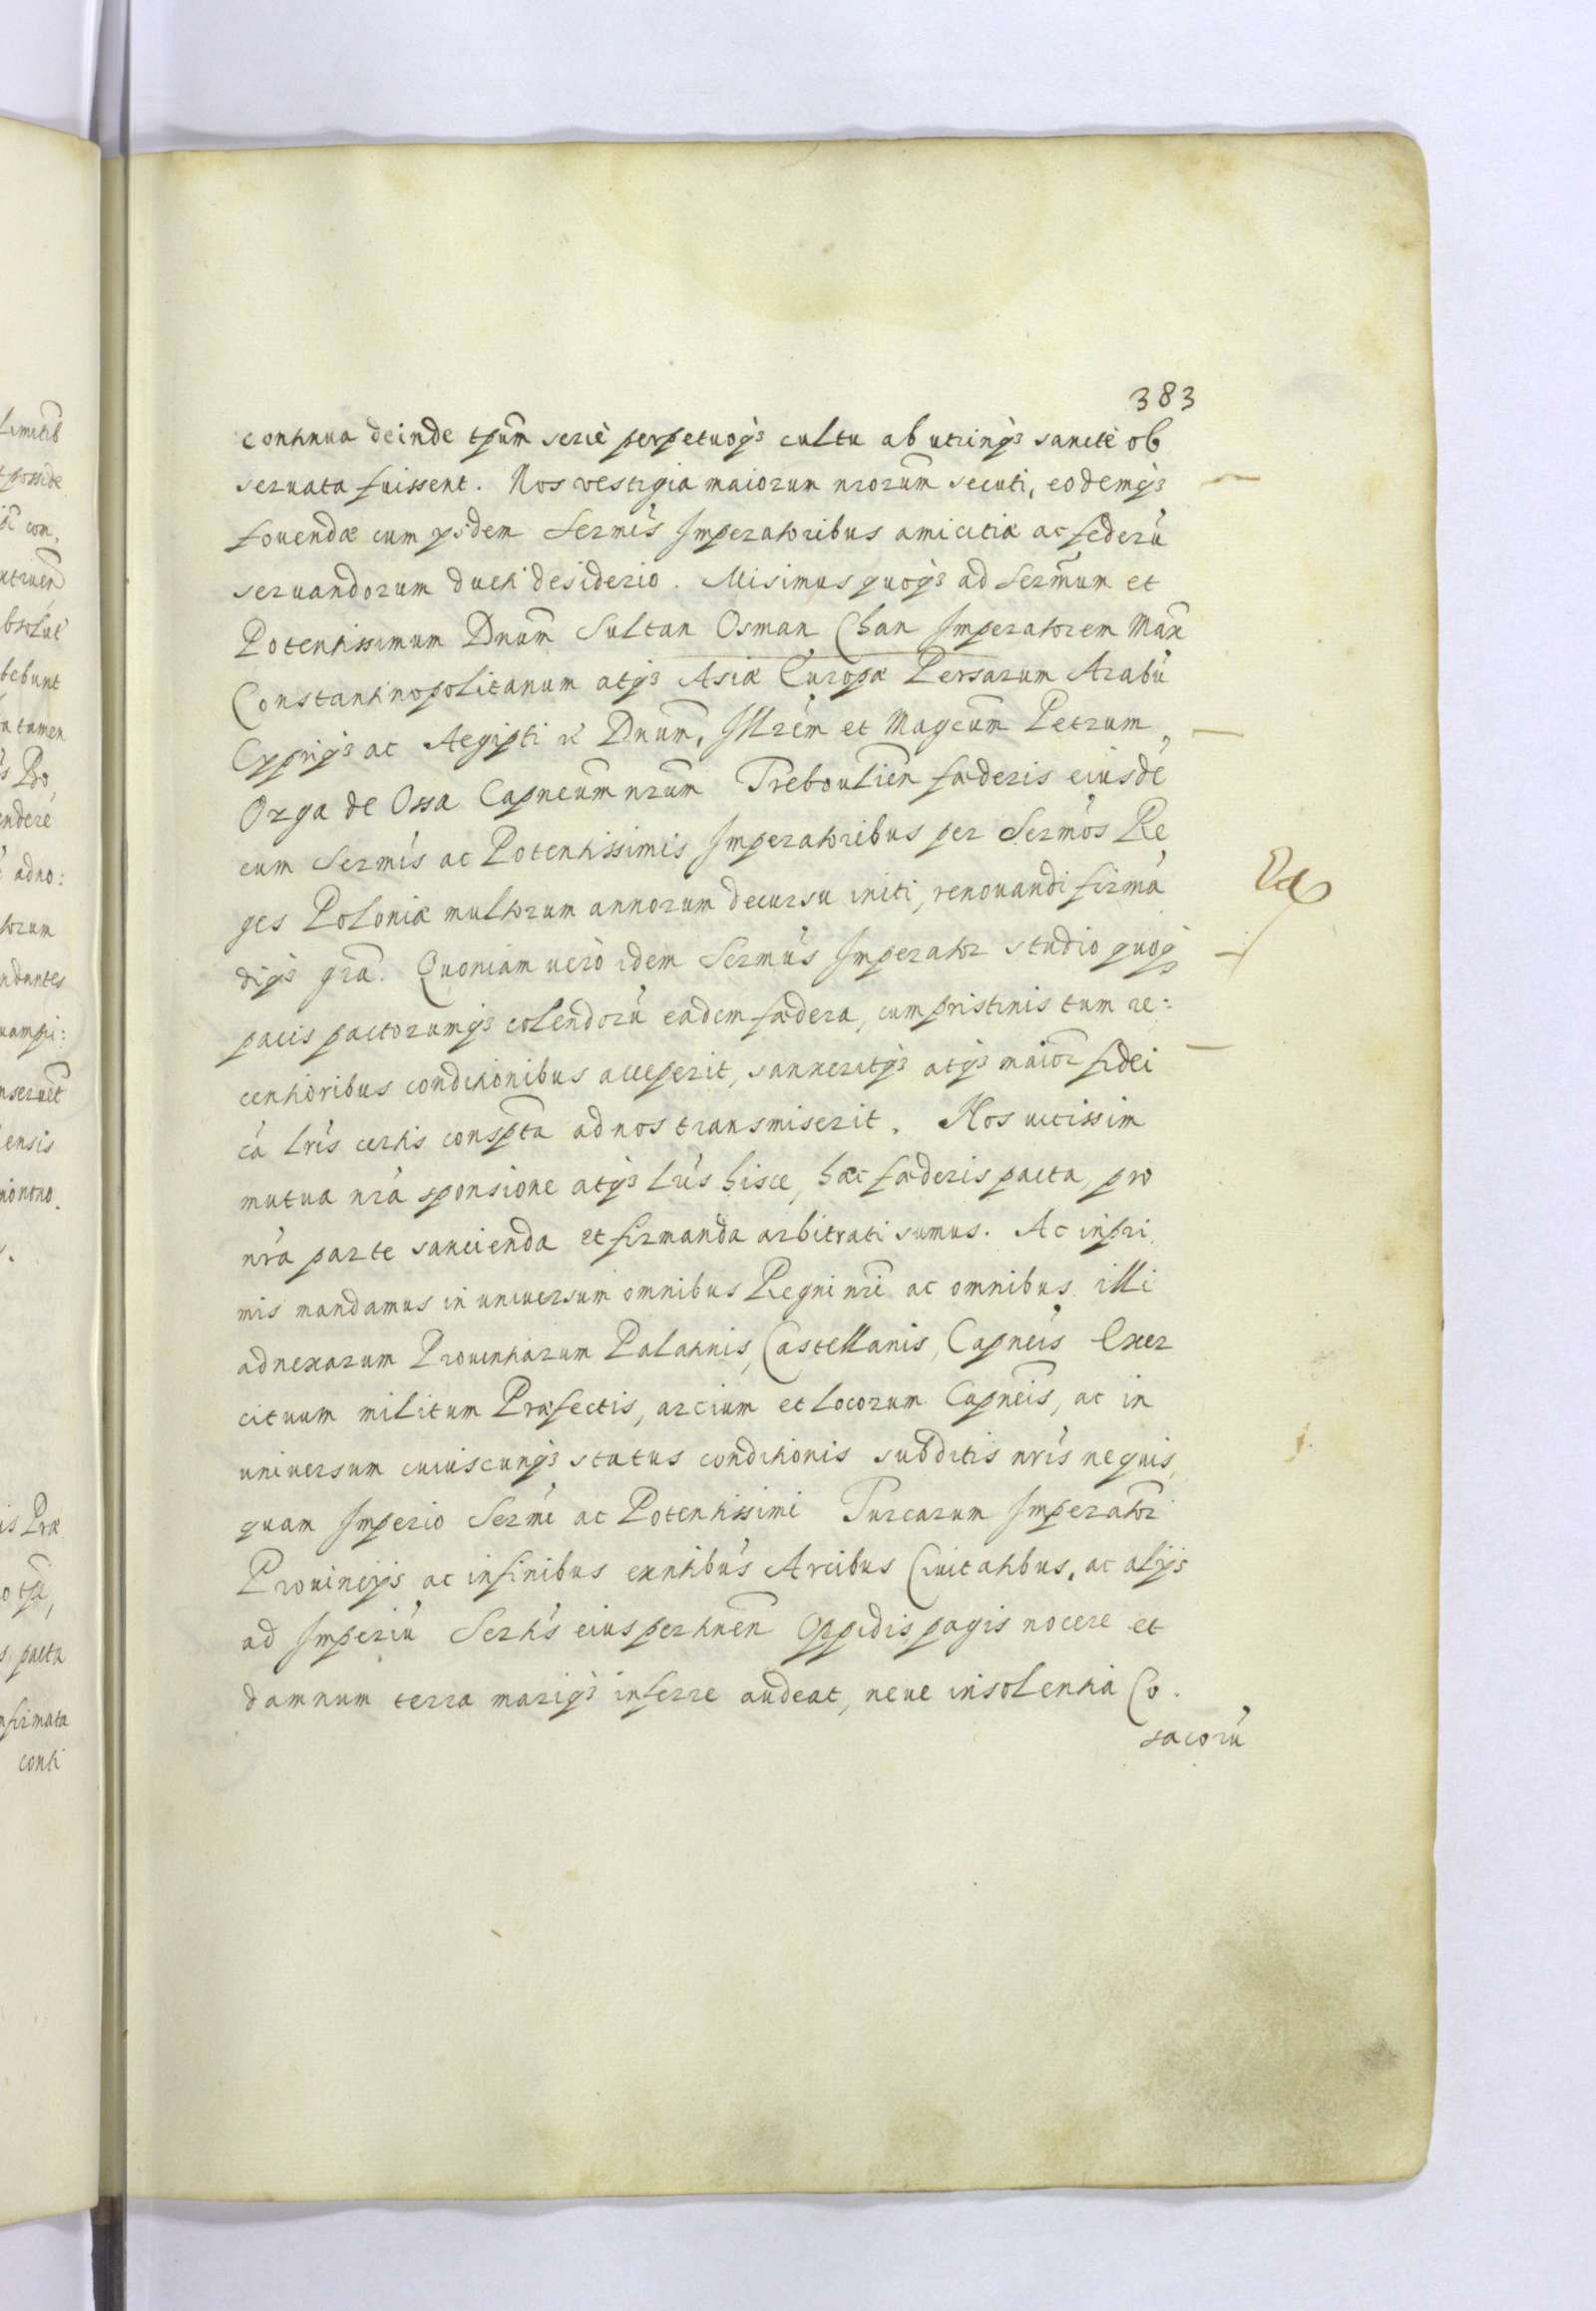 383
continua deinde tpum serie perpetuoq3 cultu ab utrinq3 sanctè ob
seruata fuissent. Nos vestigia maiorum nrorum secuti, eodemq3
fouendæ cum ijsdem Sermis Imperatoribus amicitiæ ac federu
seruandorum ducti desiderio. Misimus quoq3 ad Sermum et
Potentissimum Dnum Sultan Osman Chan Imperatorem Max
Constantinopolitanum atq3 Asiæ Europæ Persarum Arabu
Cypriq3 ac Aegipti &c Dnum, Illrem et Magcum Petrum
Ozga de Ossa Capneum nrum Treboulien fæderis eiusde
cum Sermis ac Potentissimis Imperatoribus per Sermos Re
ges Poloniæ multorum annorum decursu initi, renouandi firma
diq3 gra. Quoniam uerò idem Sermus Imperator studio quoq3
pacis pactorumq3 colendoru eadem fædera, cum pristinis tum re:
centioribus conditionibus acceperit, sanxeritq3 atq3 maior fidei
ca lris certis conspta ad nos transmiserit. Nos uicissim
mutua nra sponsione atq3 lris hisce, hæc fæderis pacta, pro
nra parte sancienda et firmanda arbitrati sumus. Ac inpri
mis mandamus in uniuersum omnibus Regni nri ac omnibus illi
adnexarum Prouintiarum Palatinis, Castellanis, Capneis Exer
cituum militum Præfectis, arcium et locorum Capneis, ac in
uniuersum cuiuscunq3 status conditionis subditis nris nequis,
quam Imperio Sermi ac Potentissimi Turcarum Imperator
Prouincijs ac in finibus exntibus Arcibus Ciuitatibus, ac alijs
ad Imperiu Sertis eius pertinen Oppidis pagis nocere et
damnum terra mariq3 inferre audeat, neue insolentia Co.
sacoru